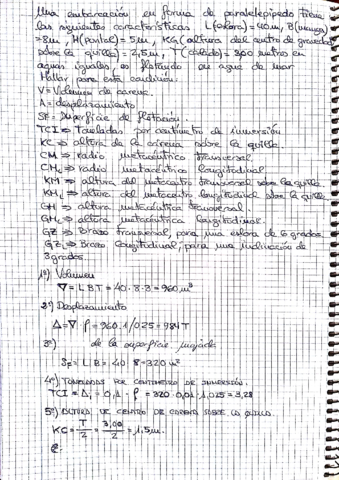 Una embarcación en forma de paralelepípedo tiene
las siguientes características L(eslora) = 40m, B(manga)
= 8m, H(puntal) = 5m, KG(altura del centro de gravedad
sobre la quilla) = 2,5m, T(calado) = 300 metros en
aguas iguales, flotando en agua de mar
Hallar para esta condición.
V = Volumen de carena.
A = desplazamiento
SF = Superficie de flotación.
TCI ⇒ Toneladas por centímetro de inmersión
KC ⇒ altura de la carena sobre la quilla.
CM ⇒ radio metacéntrico transversal
CM₁ ⇒ radio metacéntrico longitudinal
KM ⇒ altura del metacentro transversal sobre la quilla.
KM₁ ⇒ altura del metacentro longitudinal sobre la quilla
GM ⇒ altura metacéntrica transversal.
GM₁ ⇒ altura metacéntrica longitudinal.
GZ ⇒ Brazo transversal, para una eslora de 6 grados.
GZ₁ ⇒ Brazo longitudinal, para una inclinación de
3 grados.
1º) Volumen
∇ = L B T = 40 · 8 · 3 = 960 m³
2º) Desplazamiento
Δ = ∇ · ρ = 960 · 1/025 = 984 T
3º) de la superficie mojada
SF = L B = 40 · 8 = 320 m²
4º) TONELADAS POR CENTIMETRO DE INMERSIÓN.
TCI = Δ₁ = 0,1 · ρ = 320 · 0,01 · 1,025 = 3,28
5º) ALTURA DE CENTRO DE CARENA SOBRE LA QUILLA.
KC = T/2 = 3,00/2 = 1,5m.